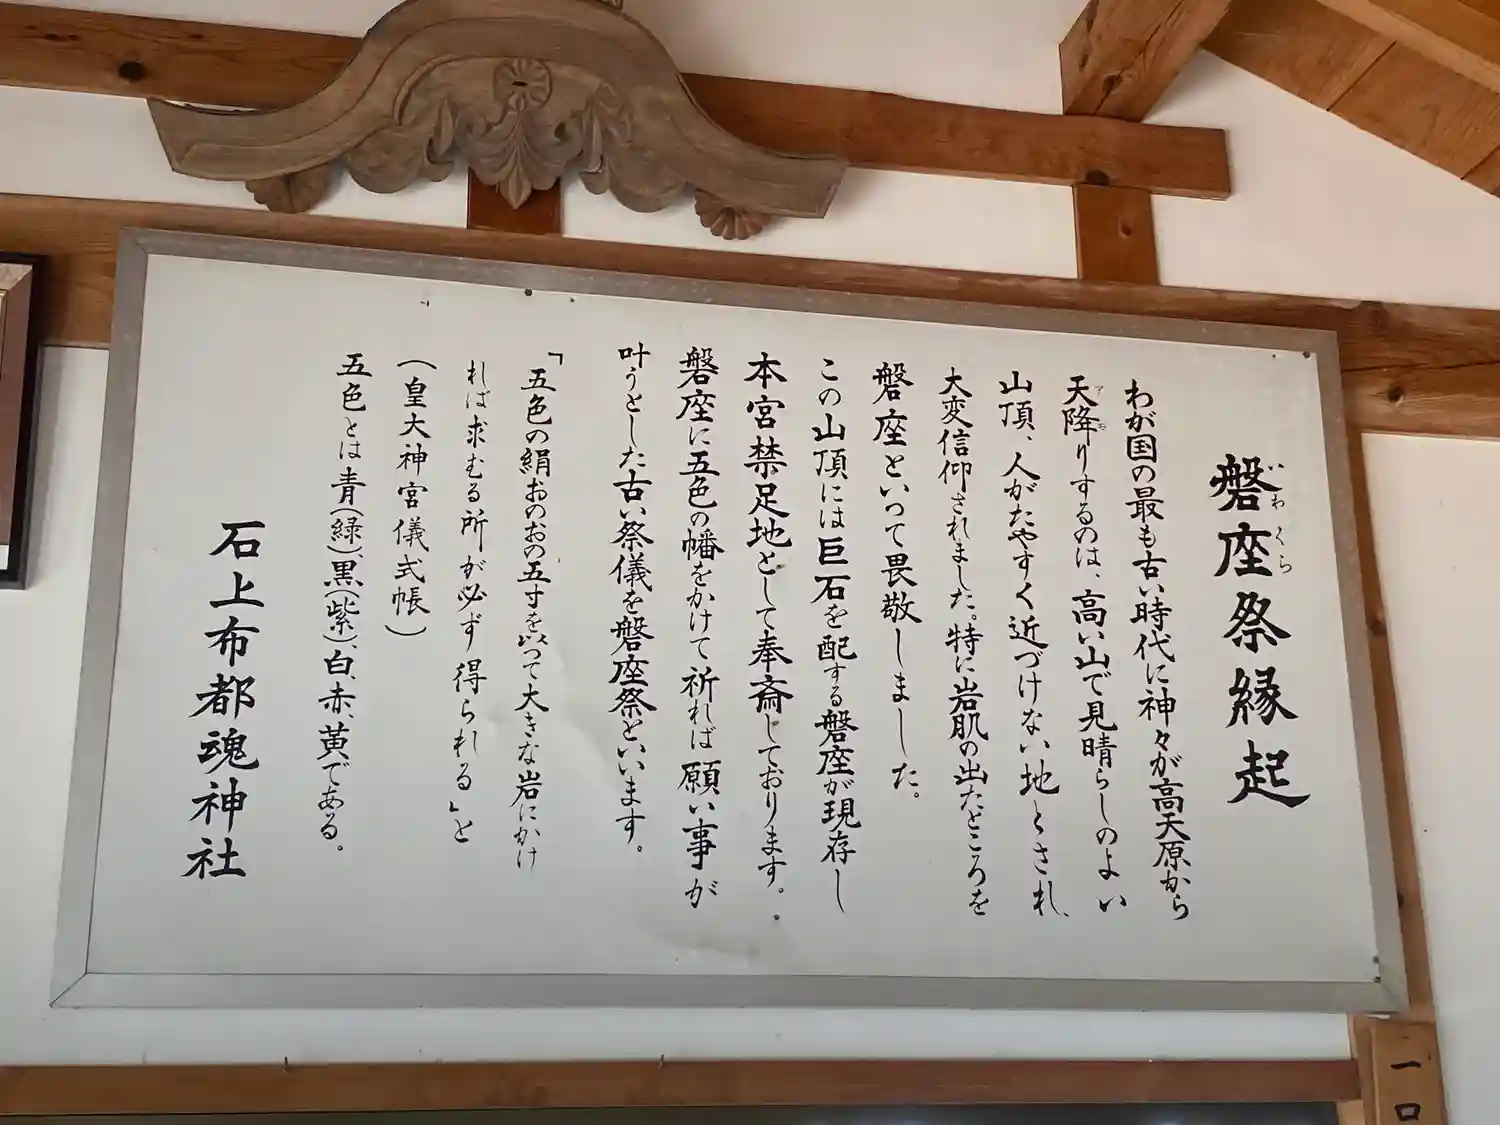 磐座祭縁起
いわくら
わが国の最も古い時代に神々が高天原から
天降りするのは、高い山で見晴らしのよい
アモ
山頂、人がたやすく近づけない地とされ、
大変信仰されました。特に岩肌の出たところを
磐座といって畏敬しました。
この山頂には巨石を配する磐座が現存し
本宮禁足地として奉斎しております。
磐座に五色の幡をかけて祈れば願い事が
叶うとした古い祭儀を磐座祭といいます。
「五色の絹おのおの五寸を以って大きな岩にかけ
れば求むる所が必ず得られる」と
(皇大神宮儀式帳)
五色とは青(緑)、黒(紫)、白、赤、黄である。
石上布都魂神社
一口